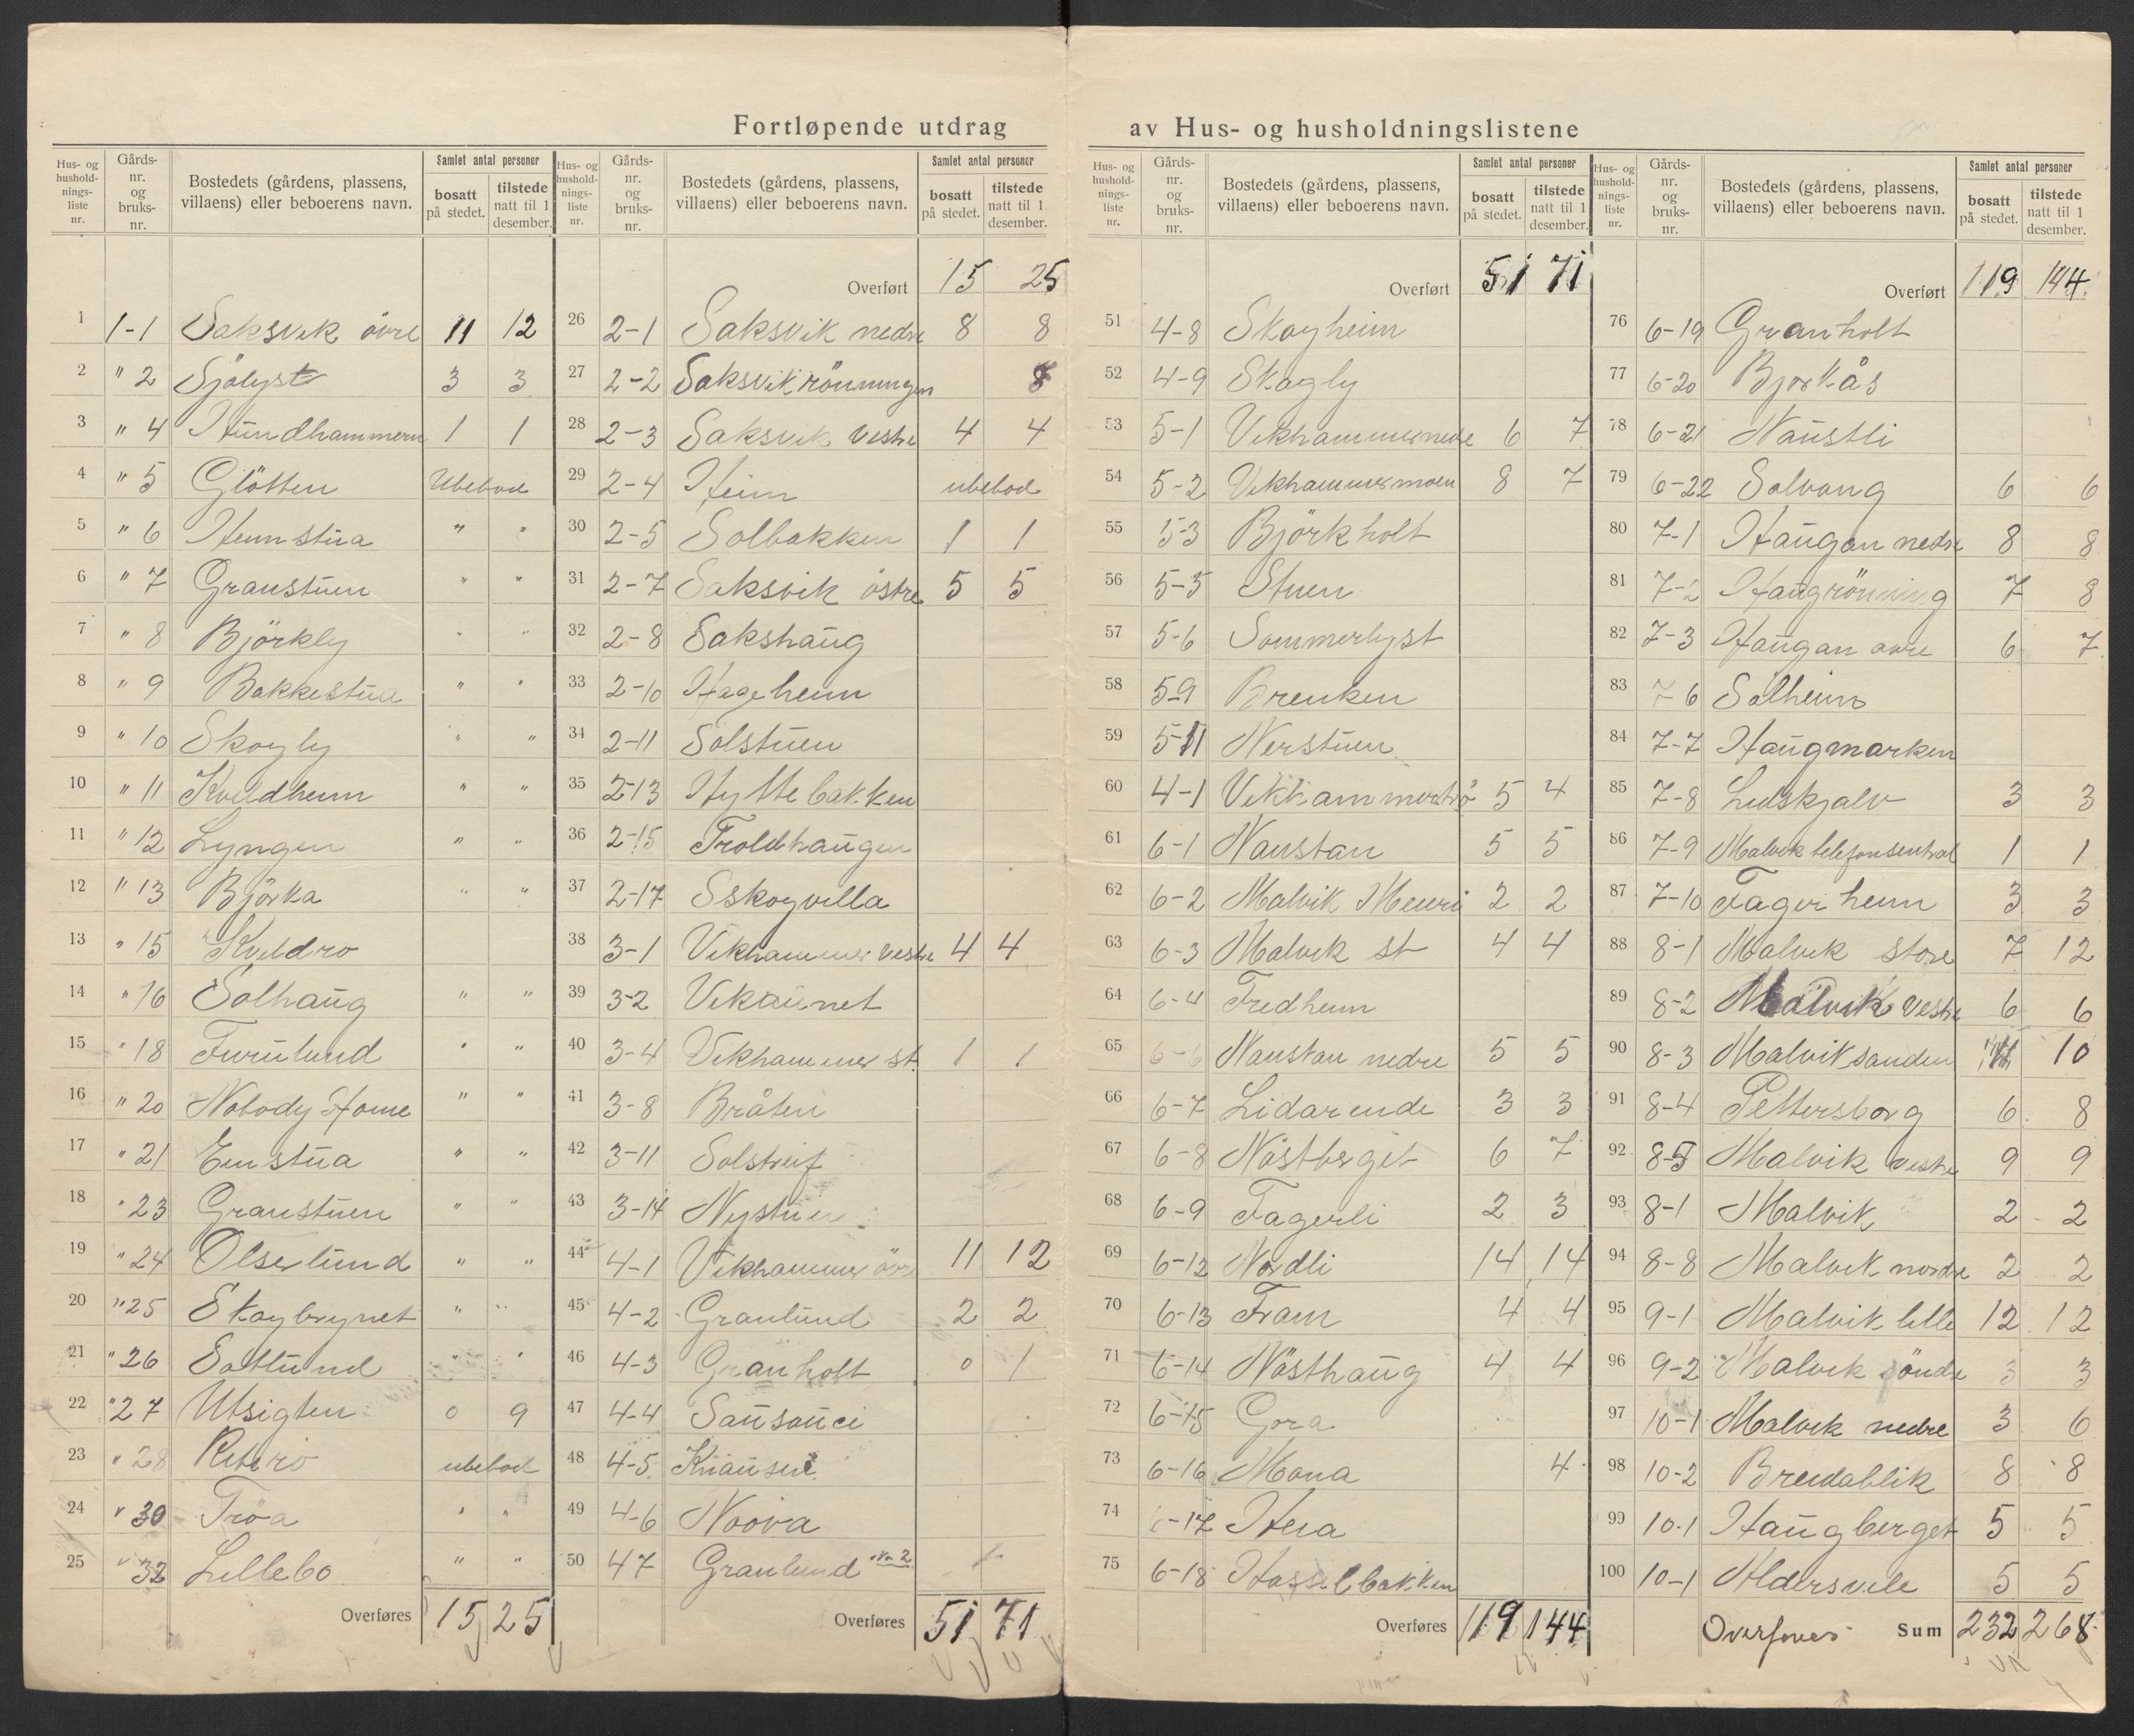 Fortløpende utdrag av Hus- og husholdningslistene
Hus- og husholdningsliste nr.
Gårds-nr. og bruks-nr.
Bostedets (gårdens, plassens, villaens) eller beboerens navn.
Samlet antal personer
bosatt på stedet.
tilstede natt til 1 desember.
1 1-1 Saksvik övre 11 12
2 " 2 Sjölyst 3 3
3 " 4 Hundhammern 1 1
4 " 5 Glötten Ubebod
5 " 6 Heimstua " "
6 " 7 Granstuen " "
7 " 8 Björkly " "
8 " 9 Bakkestua " "
9 " 10 Skogly " "
10 " 11 Kveldheim " "
11 " 12 Lyngen " "
12 " 13 Björka " "
13 " 15 Kveldro
14 " 16 Solhaug " "
15 " 18 Furulund " "
16 " 20 Nobody Home " "
17 " 21 Enstua " "
18 " 23 Granstuen " "
19 " 24 Olserlund " "
20 " 25 Skogbrynet " "
21 " 26 Solund " "
22 " 27 Utsigten 0 9
23 " 28 ubebod
24 " 30 Tröa " "
25 " 32 Lillebo " "
Overføres 15 25
Hus- og husholdningsliste nr.
Gårds-nr. og bruks-nr.
Bostedets (gårdens, plassens, villaens) eller beboerens navn.
Samlet antal personer
bosatt på stedet.
tilstede natt til 1 desember.
Overført 15 25
26 2-1 Saksvik nedre 8 8
27 2-2 Saksvikrönningen 8
28 2-3 Saksvik vestre 4 4
29 2-4 Heim ubebod
30 2-5 Solbakken 1 1
31 2-7 Saksvik östre 5 5
32 2-8 Sakshaug
33 2-10 Hageheim
34 2-11 Solstuen
35 2-13 Hyttebakken
36 2-15 Troldhaugen
37 2-17 Sskogvilla
38 3-1 Vikhammer vestre 4 4
39 3-2 Vikaunet
40 3-4 Vikhammer st. 1 1
41 3-8 Bråten
42 3-11 Solstreif
43 3-14 Nystuen
44 4-1 Vikhammer övr 11 12
45 4-2 Granlund 2 2
46 4-3 Granholt 0 1
47 4-4 Sausouci
48 4-5 Knausen
49 4-6 Noova
50 4 7 Granlund nr 2
Overføres 51 71
Hus- og husholdningsliste nr.
Gårds-nr. og bruks-nr.
Bostedets (gårdens, plassens, villaens) eller beboerens navn.
Samlet antal personer
bosatt på stedet.
tilstede natt til 1 desember.
Overført 51 71
51 4-8 Skogheim
52 4-9 Skogly
53 5-1 Vikhammer nedre 6 7
54 5-2 Vikhammermoen 8 7
55 5-3 Björkholt
56 5-5 Stuen
57 5-6 Sommerlyst
58 5-9 Brenken
59 5-11 Nerstuen
60 4-1 Vikhammertrö 5 4
61 6-1 Naustan 5 5
62 6-2 Malvik Meieri 2 2
63 6-3 Malvik st 4 4
64 6-4 Fredheim
65 6-6 Naustan nedre 5 5
66 6-7 Lidarende 3 3
67 6-8 Nöstberget 6 7
68 6-9 Fagerli 2 3
69 6-12 Nordli 14 14
70 6-13 Fram 4 4
71 6-14 Nösthaug 4 4
72 6-15 Gora
73 6-16 Mona 4
74 6-17 Heia
75 6-18 Hasselbakken
Overføres 119 144
Hus- og husholdningsliste nr.
Gårds-nr. og bruks-nr.
Bostedets (gårdens, plassens, villaens) eller beboerens navn.
Samlet antal personer
bosatt på stedet.
tilstede natt til 1 desember.
Overført 119 144
76 6-19 Granholt
77 6-20 Bjorkås
78 6-21 Naustli
79 6-22 Solvang 6 6
80 7-1 Haugan nedre 8 8
81 7-2 Haugrönning 7 8
82 7-3 Haugan övre 6 7
83 7-6 Solheim
84 7-7 Haugmarken
85 7-8 Lidskjalv 3 3
86 7-9 Malvik telefonsentral 1 1
87 7-10 Fagerheim 3 3
88 8-1 Malvik store 7 12
89 8-2 Malvik vestre 6 6
90 8-3 Malviksanden 11 10
91 8-4 Pettersborg 6 8
92 8-5 Malvik vestre 9 9
93 8-1 Malvik 2 2
94 8-8 Malvik nordre 2 2
95 9-1 Malvik lille 12 12
96 9-2 Malvik söndre 3 3
97 10-1 Malvik nedre 3 6
98 10-2 Breidablik 8 8
99 10-1 Haugberget 5 5
100 10-1 Aldersvile 5 5
Overföres Sum 232 268